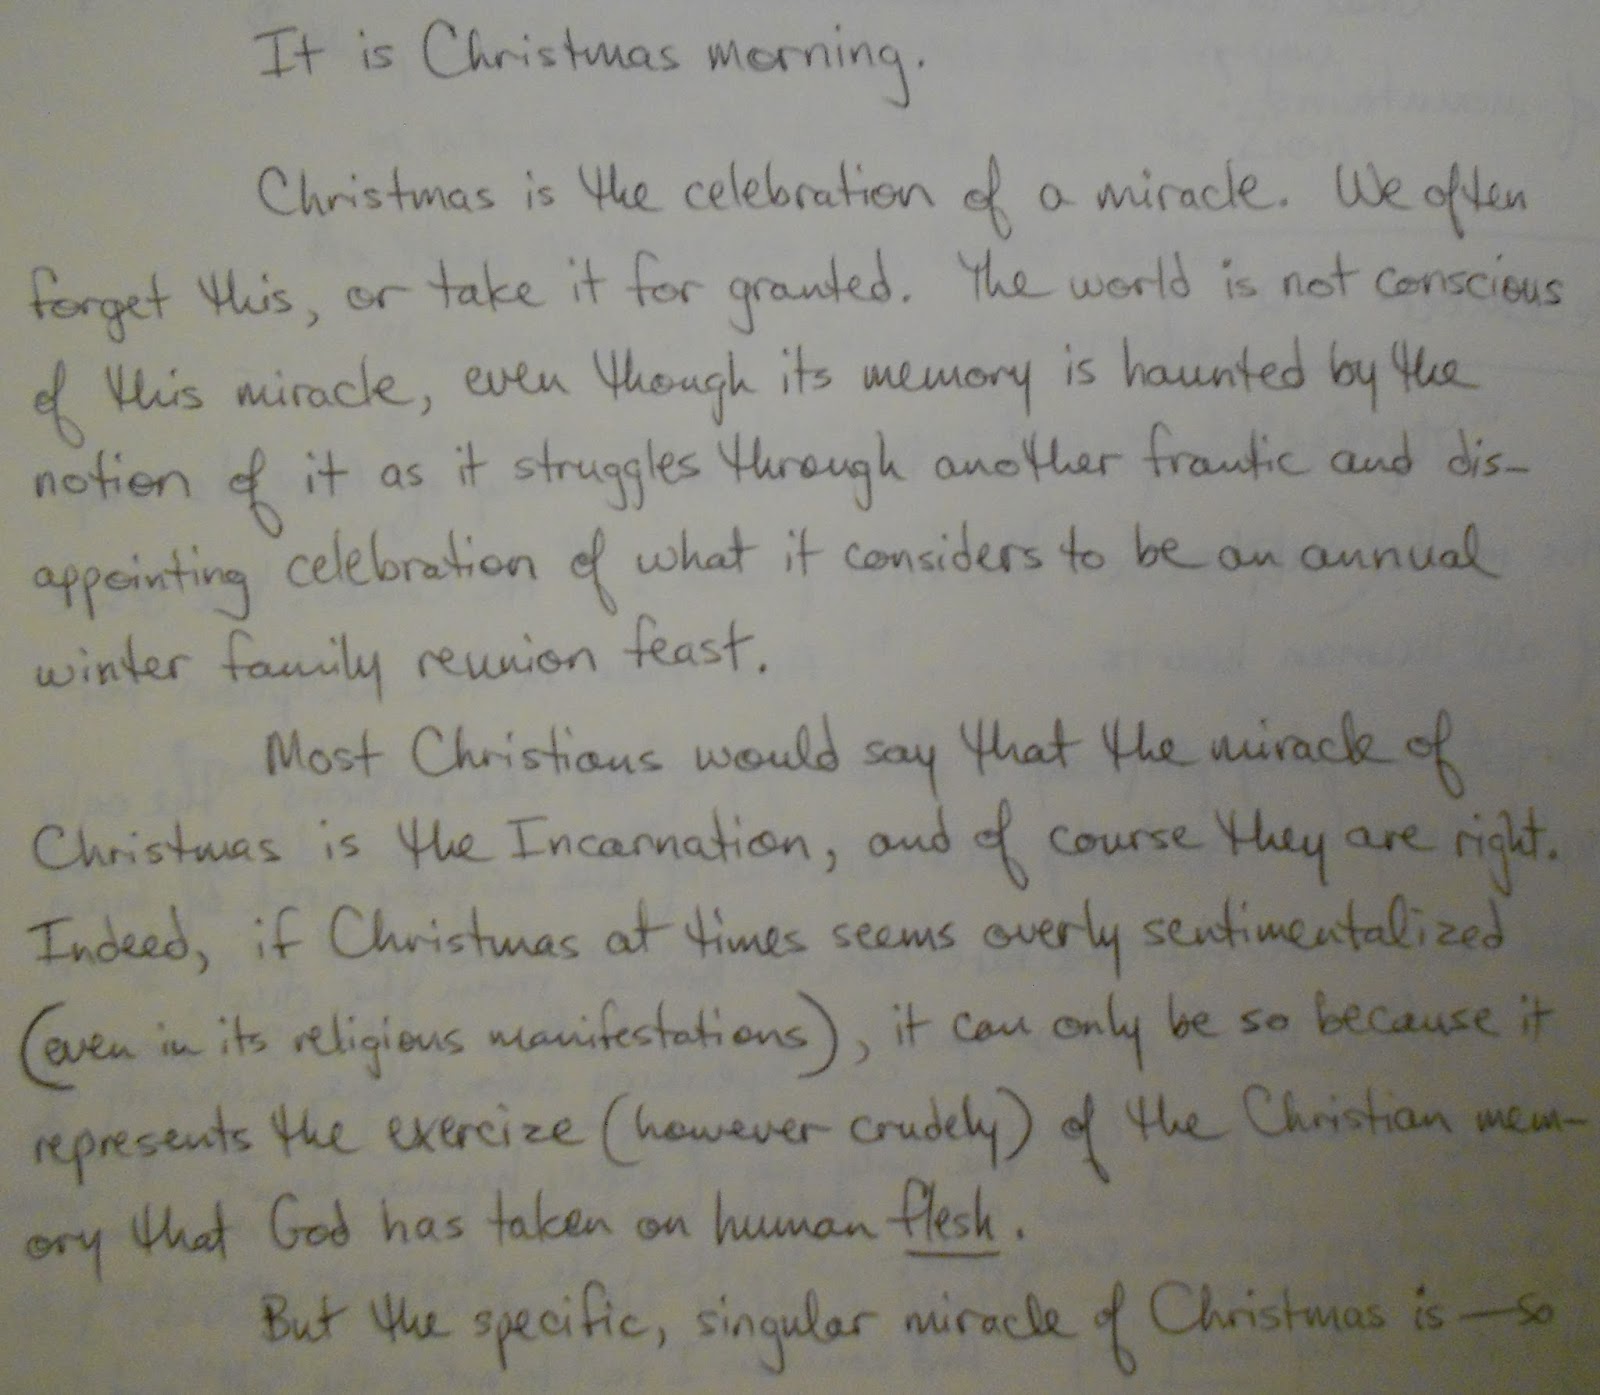 It is Christmas morning.
Christmas is the celebration of a miracle. We often
forget this, or take it for granted. The world is not conscious
of this miracle, even though its memory is haunted by the
notion of it as it struggles through another frantic and dis-
appointing celebration of what it considers to be an annual
winter family reunion feast.
Most Christians would say that the miracle of
Christmas is the Incarnation, and of course they are right.
Indeed, if Christmas at times seems overly sentimentalized
(even in its religious manifestations), it can only be so because it
represents the exercize (however crudely) of the Christian mem-
ory that God has taken on human flesh.
But the specific, singular miracle of Christmas is—so